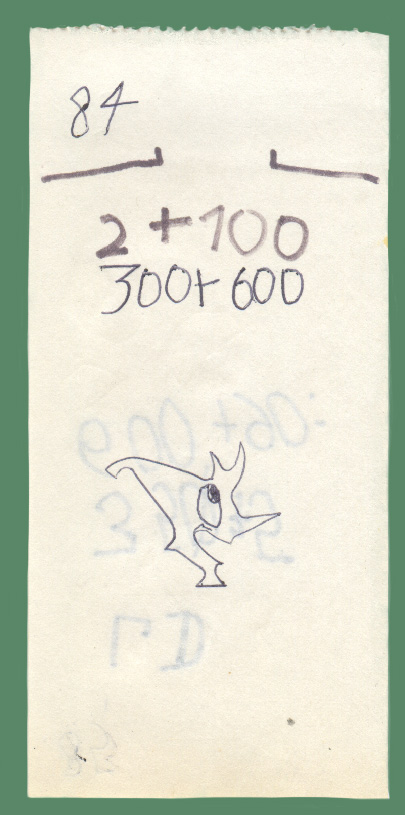 84
2+100
300+600